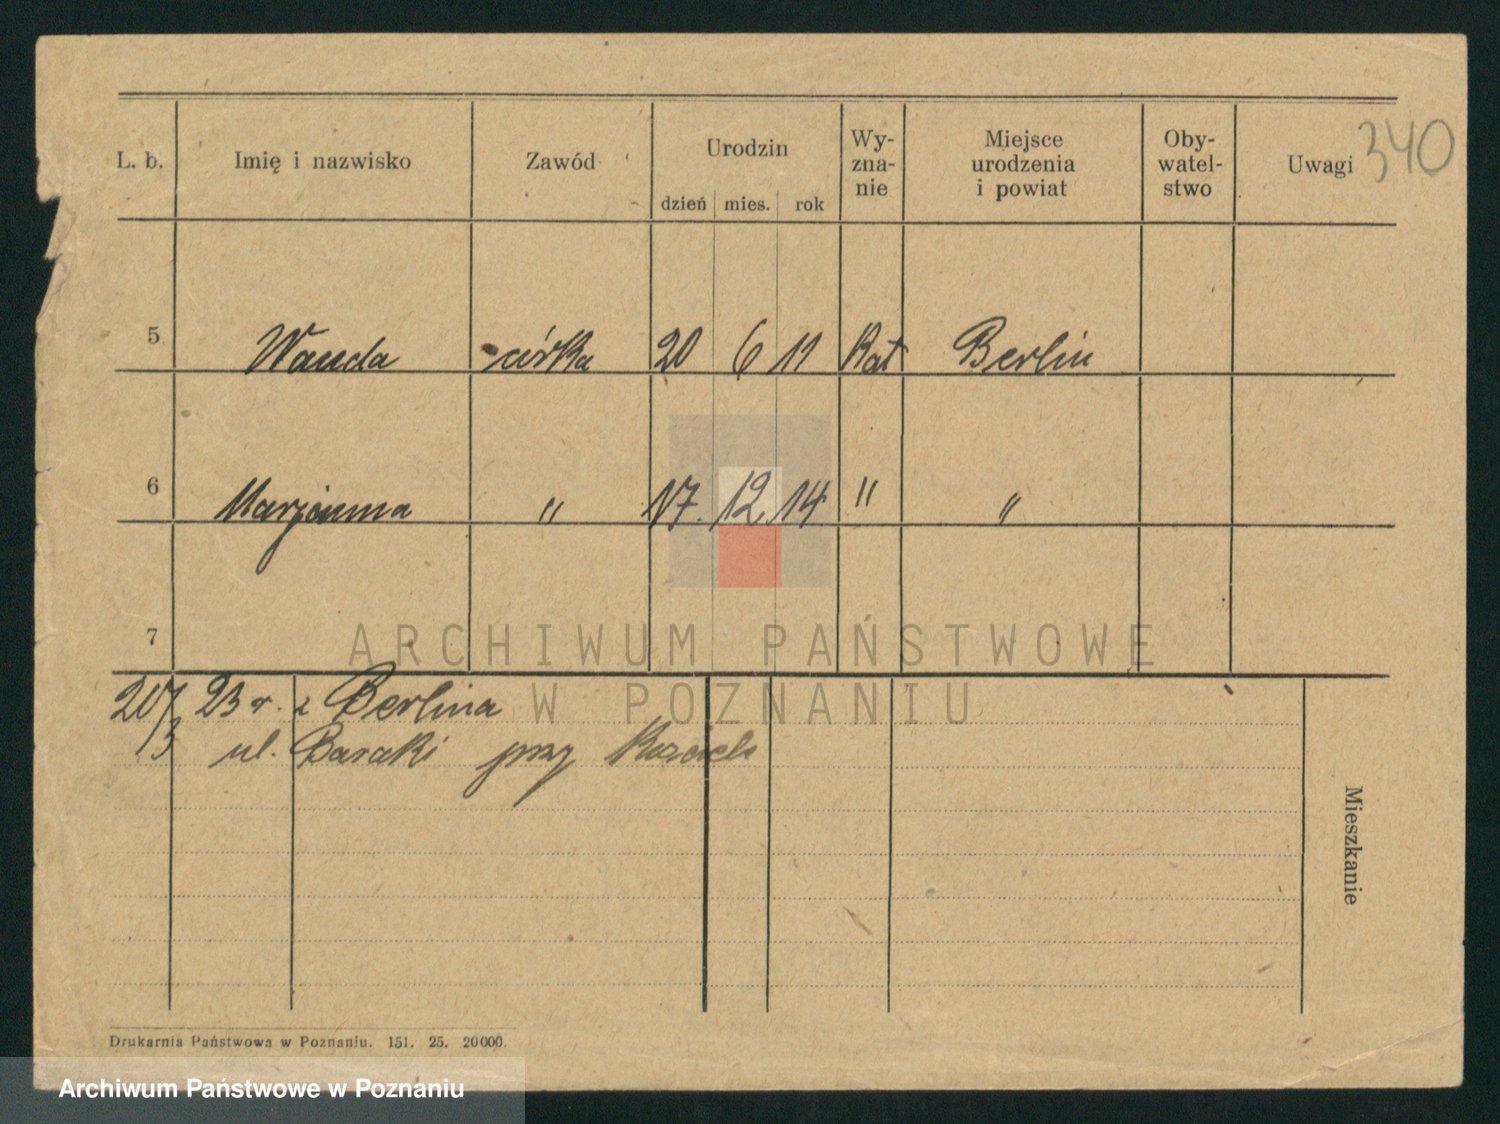 L. b. Imię i nazwisko Zawód Urodzin dzień mies. rok Wy-zna-nie Miejsce urodzenia i powiat Oby-watel-stwo Uwagi 340
5 Wanda córka 20 6 11 Kat Berlin
6 Marjanna " 17. 12 14 " "
7
ARCHIWUM PAŃSTWOWE
W POZNANIU
23 r. z Berlina
ul. Baraki przy
Mieszkanie
Drukarnia Państwowa w Poznaniu. 151. 25. 20000.
Archiwum Państwowe w Poznaniu